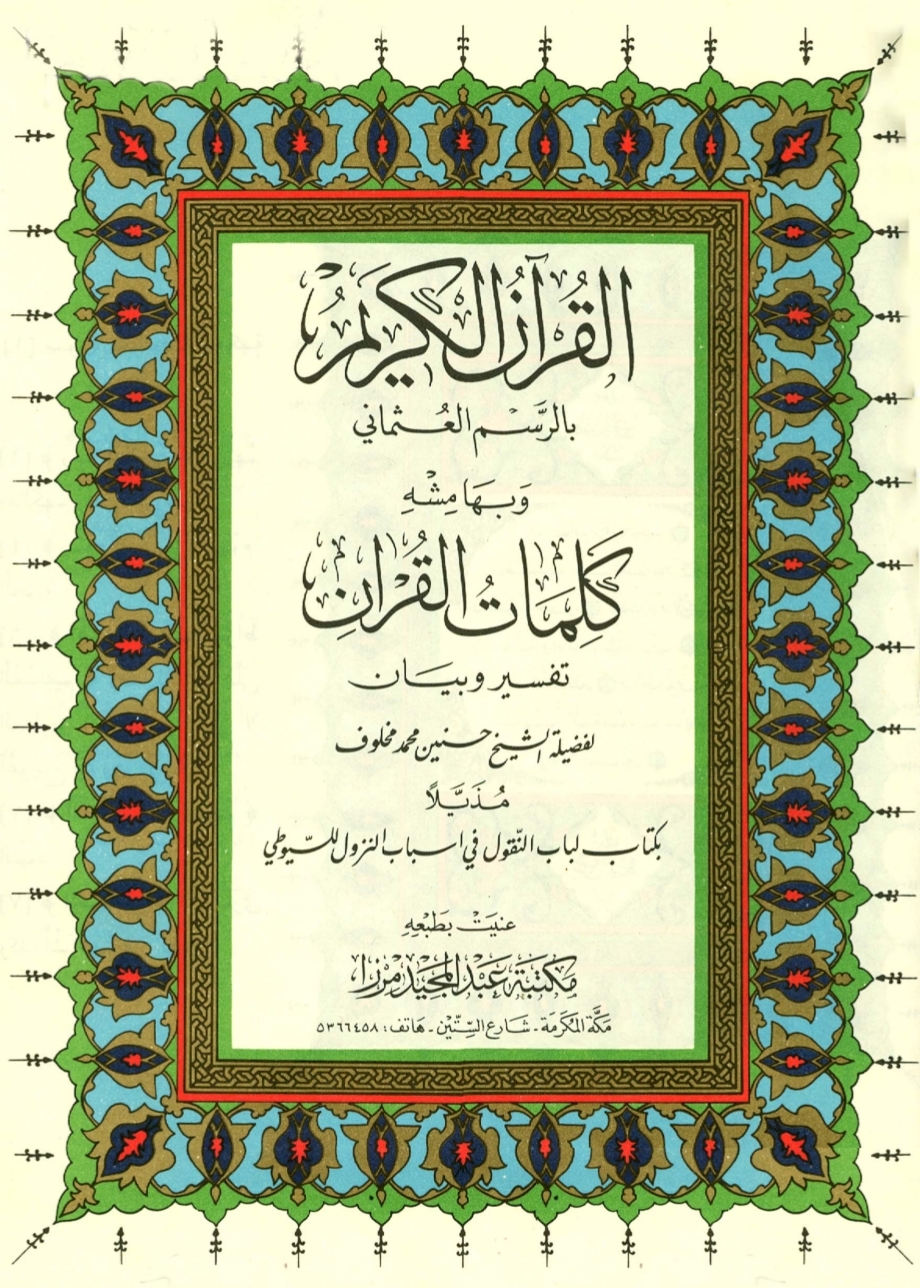 القُرآنُ الكَريمُ
بالرَّسْم العُثماني
وَبهَامِشْهِ
كَلِمَاتُ القُرْآنِ
تفسير وبيان
لفضيلة الشيخ حسنين محمد مخلوف
مُذَيَّلاً
بكتاب لباب النّقول في اسباب النزول للسّيوطي
عنيَتْ بطَبْعهِ
مَكتبَة عَبْد المجيْد مرْزا
مَكَّة المكرمَة - شَارع السِتّين - هَاتف: ٥٣٦٦٤٥٨